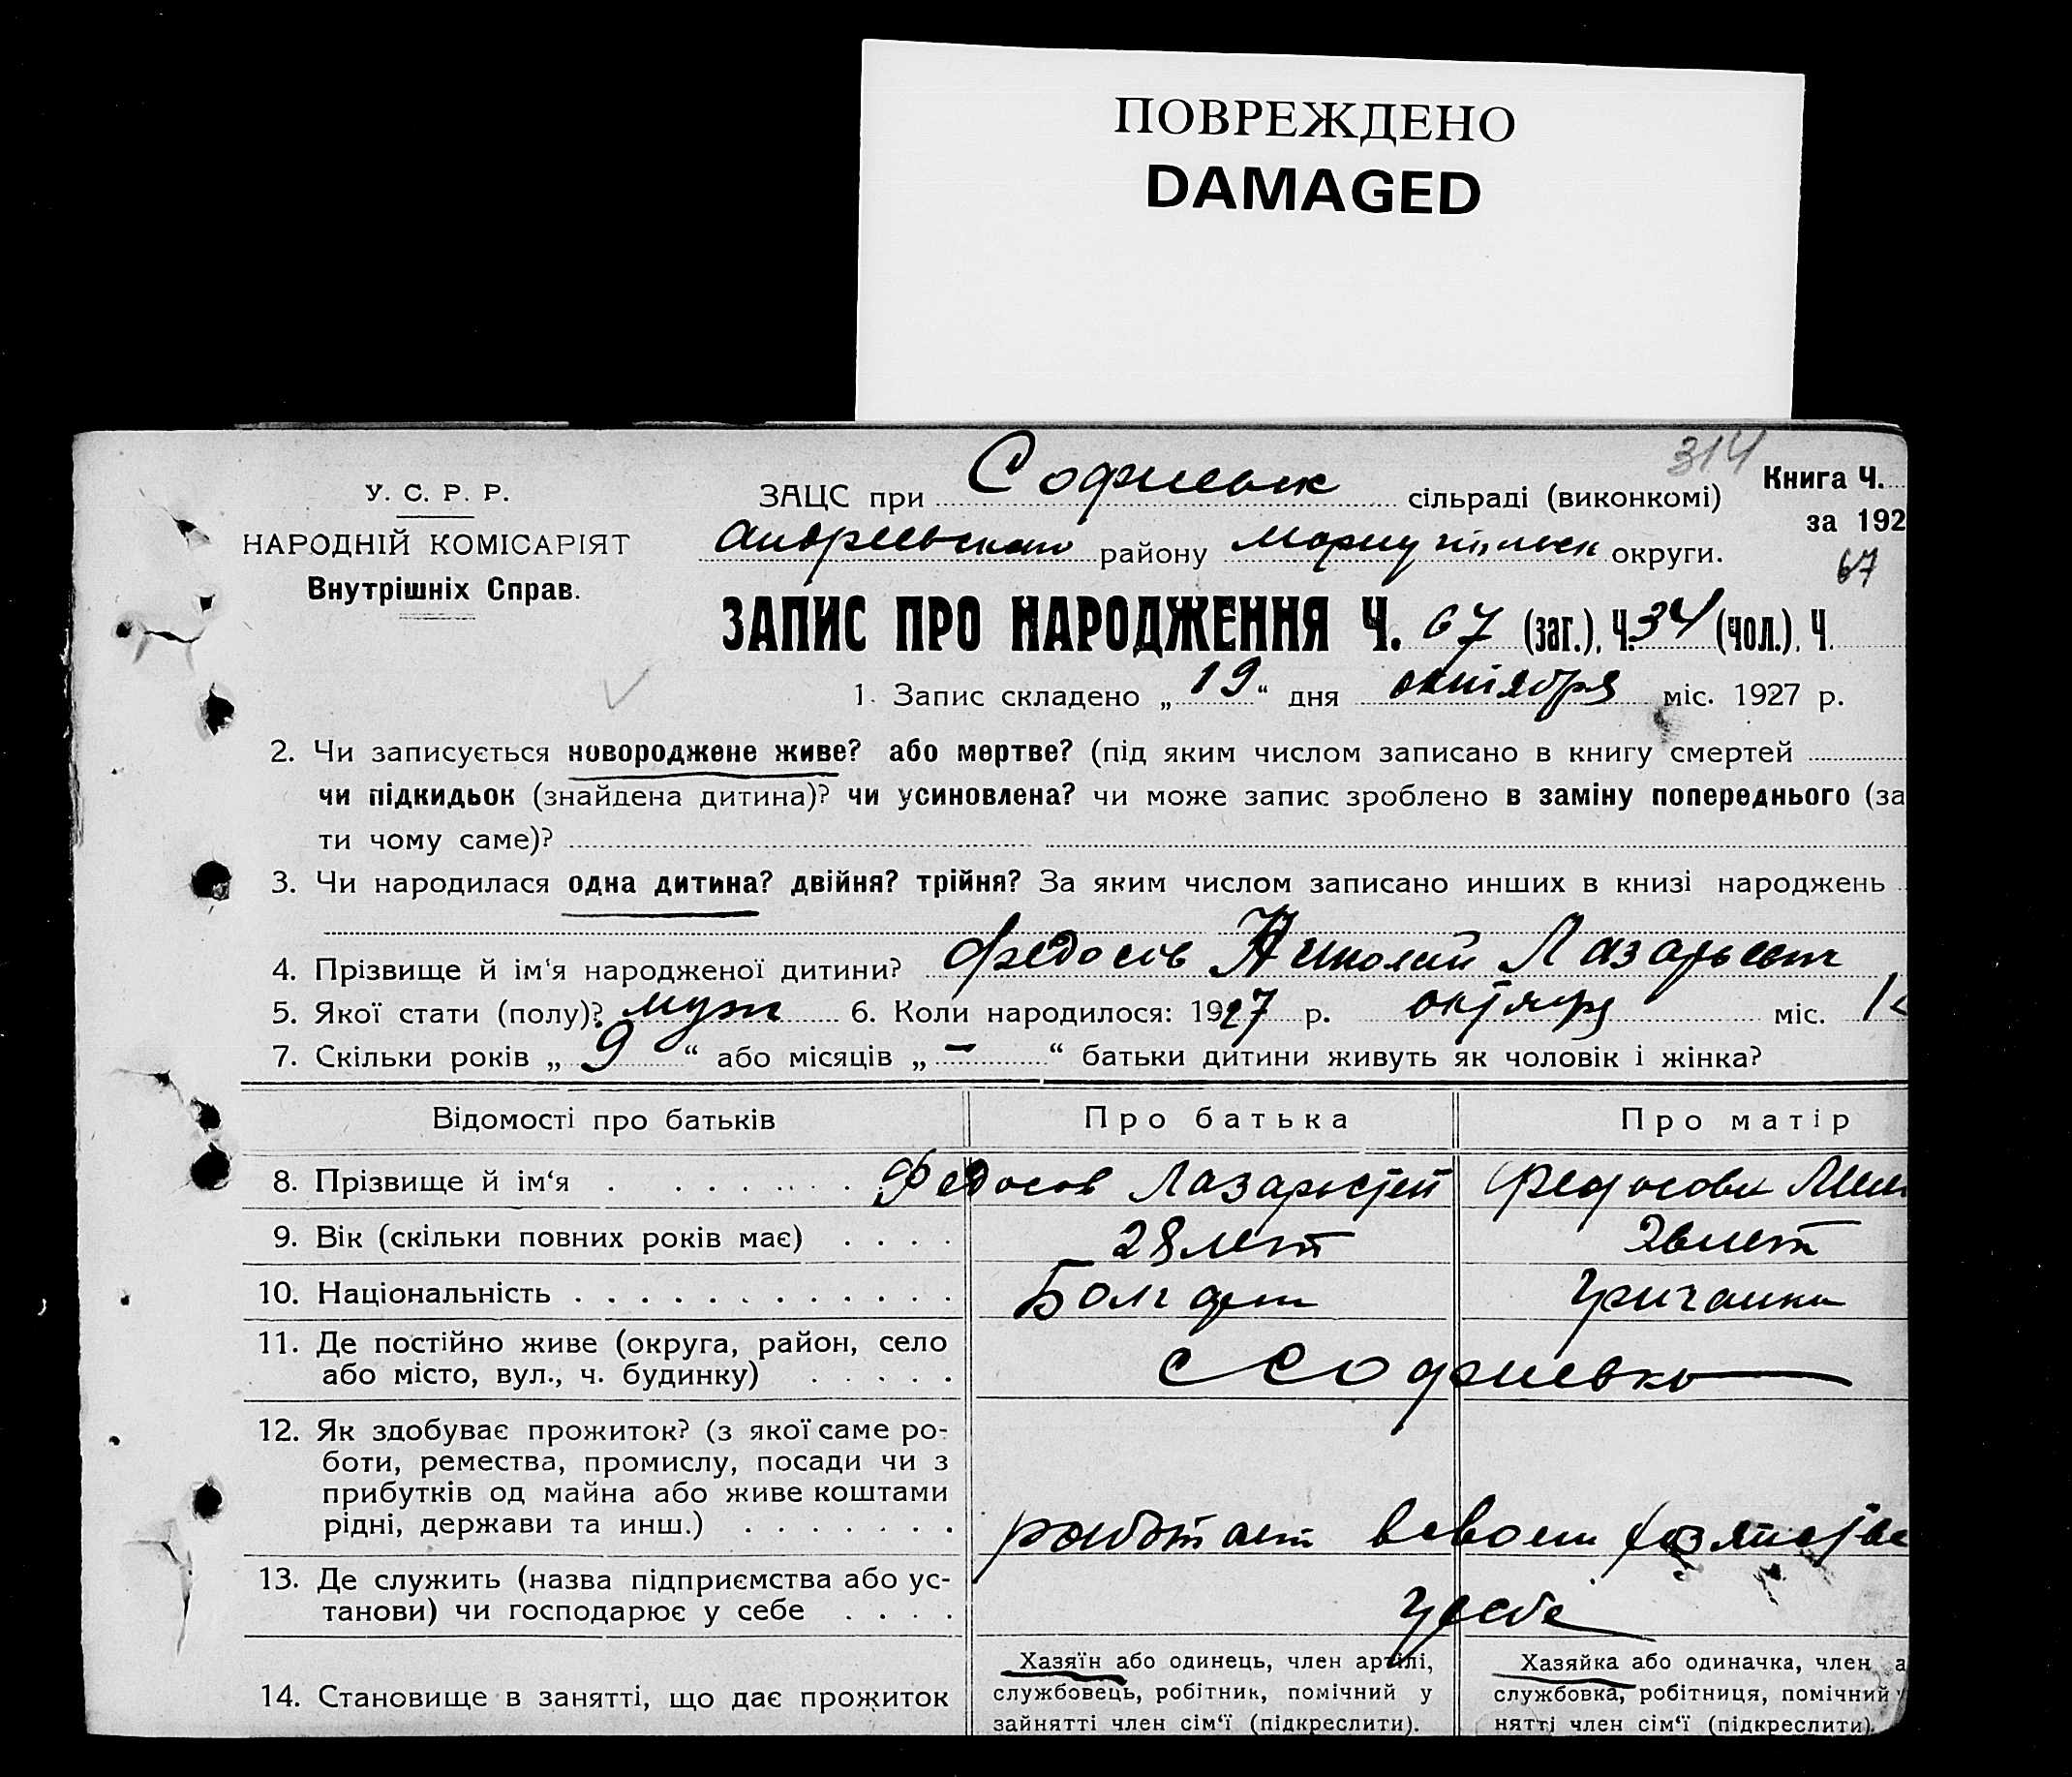 ПОВРЕЖДЕНО
DAMAGED
314
У. С. Р. Р.
НАРОДНІЙ КОМІСАРІЯТ
Внутрішніх Справ.
ЗАЦС при Софиевск сільраді (виконкомі)
Андреевского району Мариупільск округи.
Книга Ч.
за 192
67
ЗАПИС ПРО НАРОДЖЕННЯ Ч. 67 (заг.), Ч. 34 (чол.), Ч.
1. Запис складено „19“ дня октября міс. 1927 р.
2. Чи записується новороджене живе? або мертве? (під яким числом записано в книгу смертей
чи підкидьок (знайдена дитина)? чи усиновлена? чи може запис зроблено в заміну попереднього (за
ти чому саме)?
3. Чи народилася одна дитина? двійня? трійня? За яким числом записано инших в книзі народжень
4. Прізвище й ім'я народженої дитини? Федосов Николай Лазарьевич
5. Якої стати (полу)? муж 6. Коли народилося: 1927 р. октяря міс.
7. Скільки років „9“ або місяців „-“ батьки дитини живуть як чоловік і жінка?
Відомості про батьків Про батька Про матір
8. Прізвище й ім‘я Федосов Федосова
9. Вік (скільки повних років має) 28 лет 26 лет
10. Національність Болгарин Гричанка
11. Де постійно живе (округа, район, село
або місто, вул., ч. будинку) с Софиевка
12. Як здобуває прожиток? (з якої саме ро-
боти, ремества, промислу, посади чи з
прибутків од майна або живе коштами
рідні, держави та инш.) работает в своем
13. Де служить (назва підприємства або ус-
танови) чи господарює у себе у себе
14. Становище в занятті, що дає прожиток
Хазяїн або одинець, член артілі,
службовець, робітник, помічний у
зайнятті член сім‘ї (підкреслити).
Хазяйка або одиначка, член а
службовка, робітниця, помічний
нятті член сім‘ї (підкреслити).